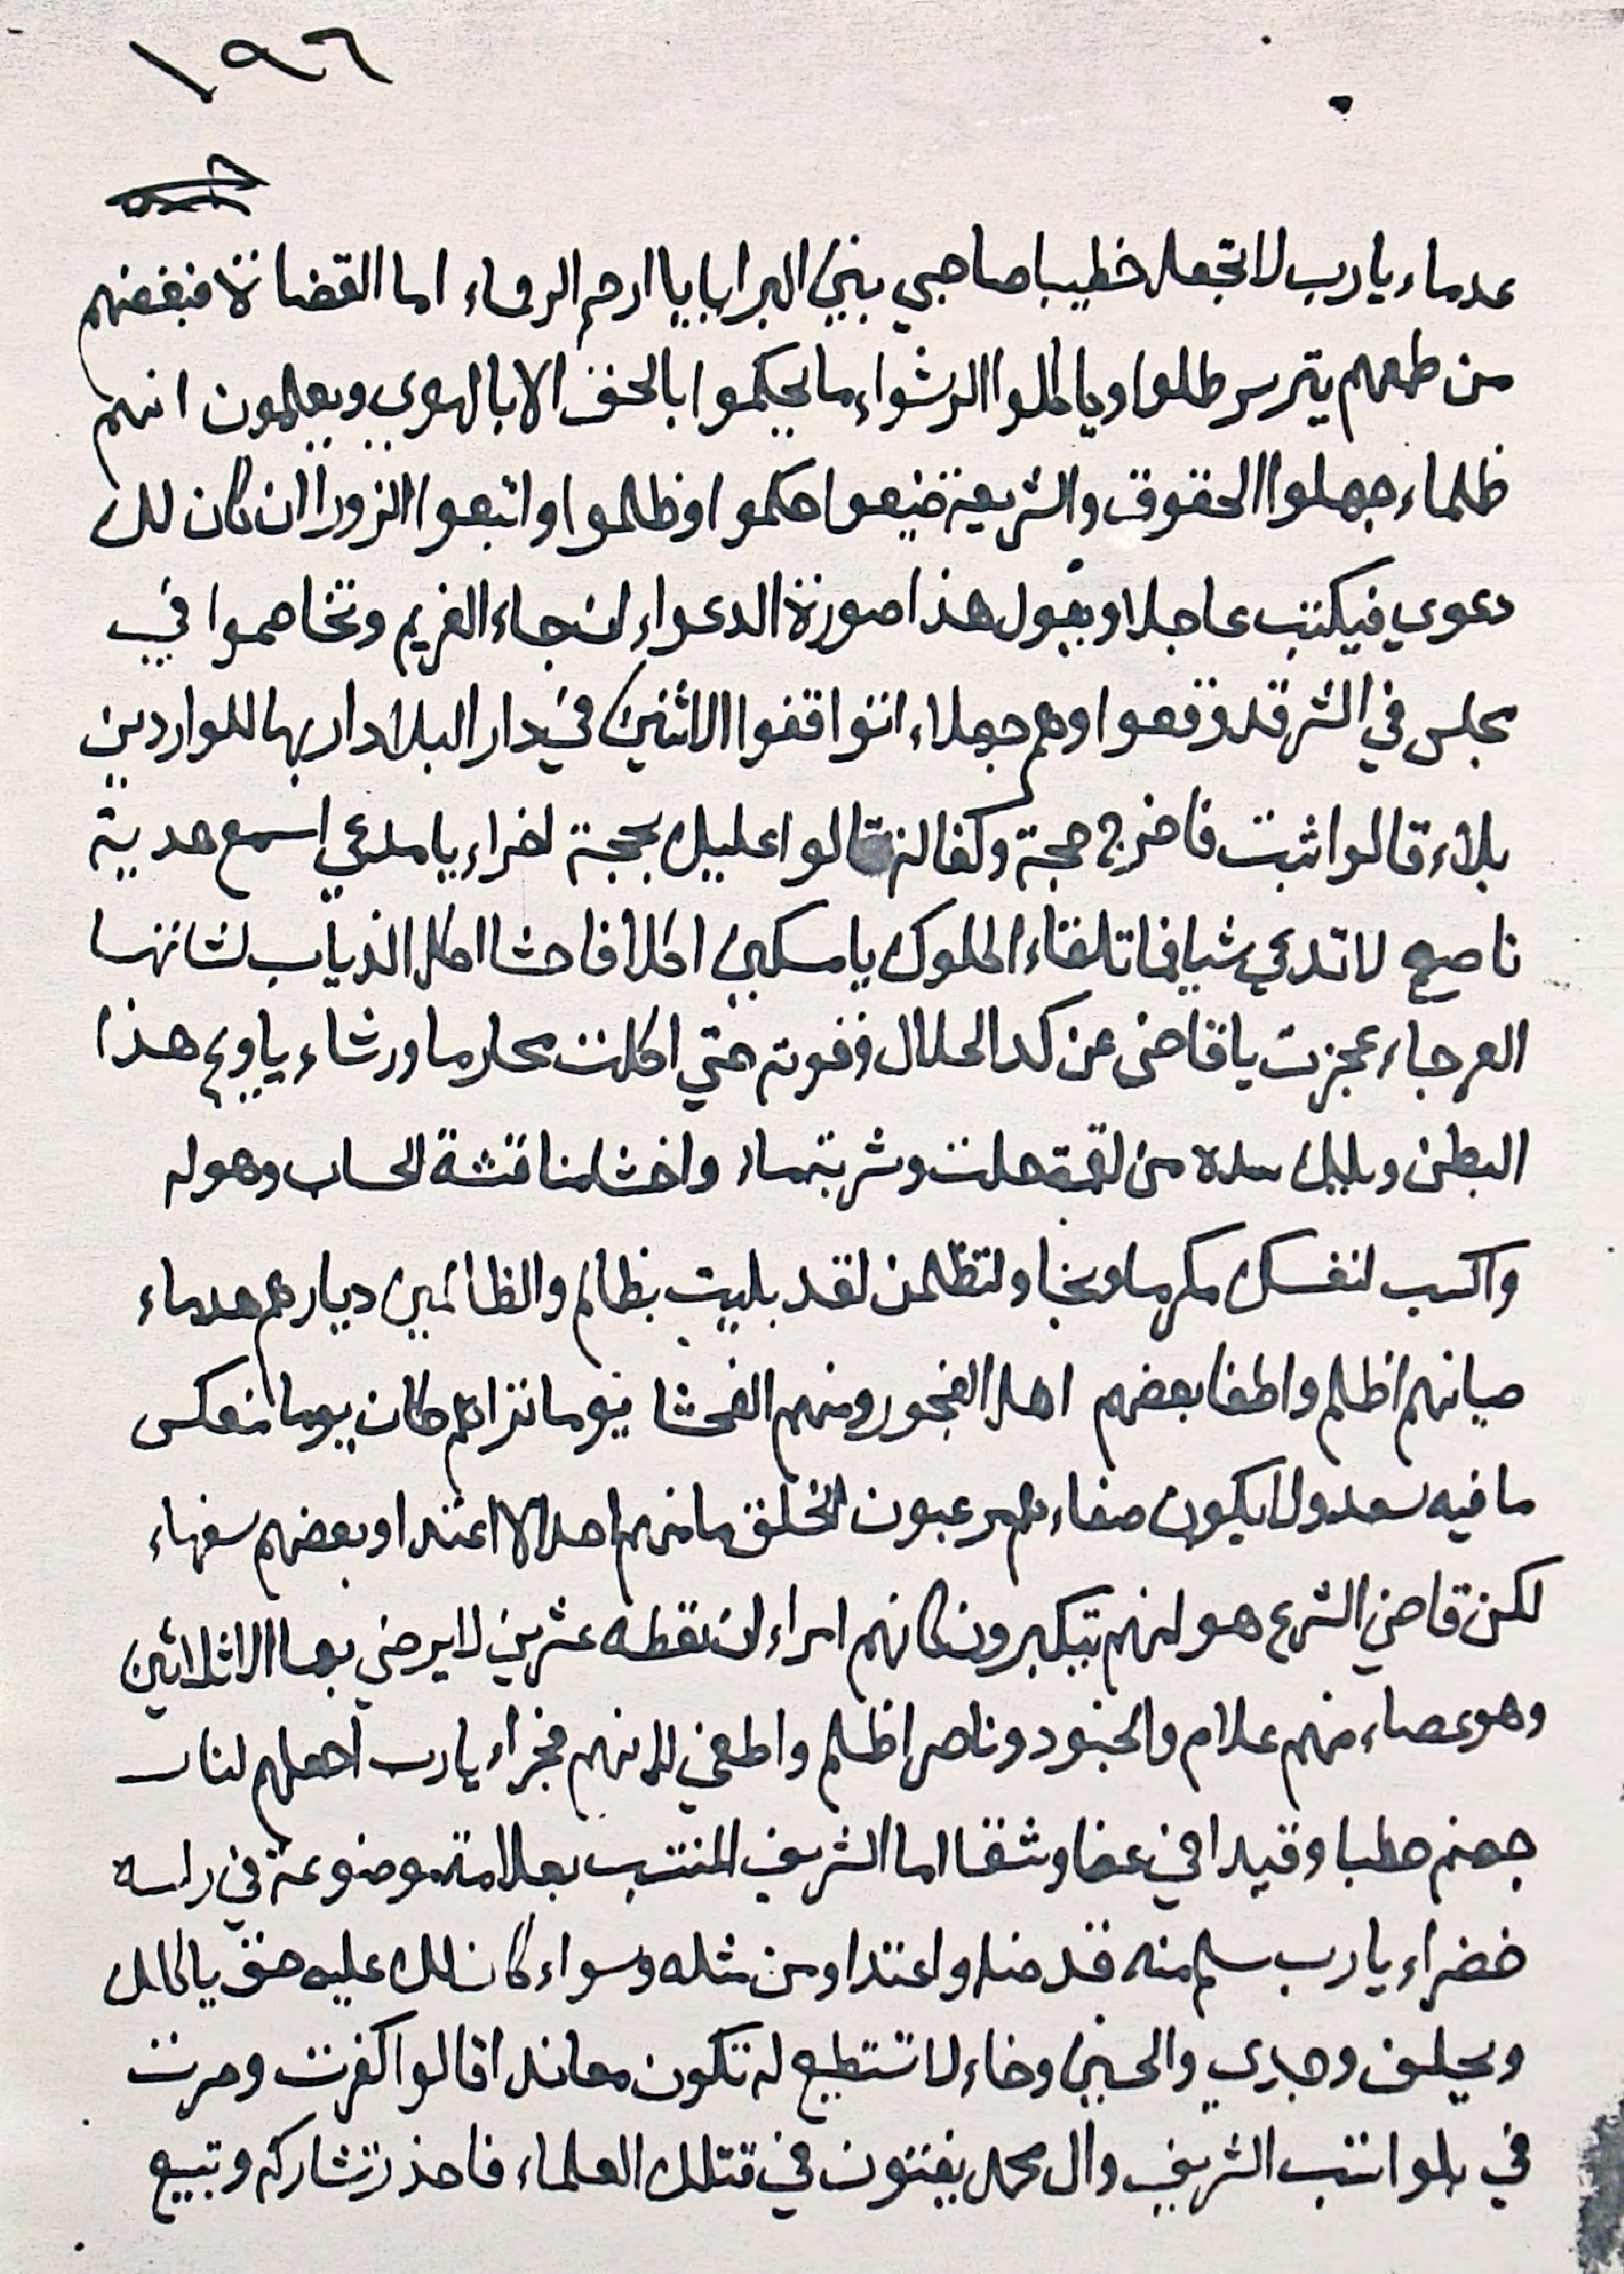 ١٩٦
عدماء يا رب لا تجعل خطيبا صاحبي بين البرايا يا ارحم الرحماء اما القضاة فبعضهم
من طمعهم يترسملوا وياكلوا الرشواء ما يحكموا بالحق الا بالهوي ويعلمون انهم
ظلماء جهلوا الحقوق والشريعة ضيعوا حكموا وظلموا واتبعوا الزورا ان كان لك
دعوي فيكتب عاجلا ويقول هذا صورة الدعواء ان جاء الغريم وتخاصموا في
مجلس في الشر قد وقعوا وهم جهلاء اتواقفوا الاثنين في دار البلا دار بها للواردين
بلاء قالوا ثبت فاخرج حجة وكفالة قالوا عليك بحجة اخراء يا مدعي اسمع هدية
ناصح لا تدعي شيا فما تلقاء الملوك يا مسكين اكلا فاحشا اكل الذياب لشاتها
العرجاء عجزت يا قاضي عن كد الحلال وقوته حتي اكلت محارما ورشاء يا ويح هذا
البطن ويليك سده من لقمة حلت وشربة ماء واخش لمناقشة الحساب وهوله
واكسب لنفسك مكرما ونجا ولتظلمن لقد بليت بظالم والظالمين ديارهم هدماء
صيانهم اظلم واطغا بعضهم اهل الفجور ومنهم الفحشا يوما نزاهم كان يوما منعكس
ما فيه سعد ولا يكون صفاء هم رعبون الخلق ما منهم احد الا اعتدا وبعضهم سفهاء
لكن قاضي الشرع هو لهم يتكبرون كانهم امراء ان نقطه عشرين لا يرضي بها الا ثلاثين
وهو عصاء منهم علام والجنود وناصر اظلم واطغي لانهم فجراء يا رب اجعلهم لنار
جهنم حطبا وقيدا في عفا وشقا اما الشريف المنتسب بعلامة موضوعة في راسه
خضراء يا رب سلم منه قد ضل واعتدا ومن مثله وسواء كان لك عليه حق ياكلك
ويحلف وجدي والحسين وخاء لا تستطيع له تكون معاندا قالوا كفرت وصرت
في بلوا تسب الشريف وال محمد يفتون في قتلك العلماء فاحذر تشاركه وتبيع